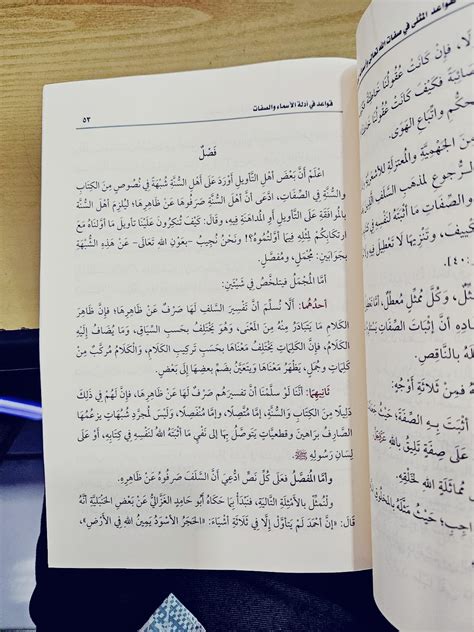 قواعد في أدلة الأسماء والصفات
٥٣
فَصْلٌ
اعْلَمْ أَنَّ بَعْضَ أَهْلِ التَّأْوِيلِ أَوْرَدَ عَلَى أَهْلِ السُّنَّةِ شُبْهَةً فِي نُصُوصٍ مِنَ الكِتَابِ
وَالسُّنَّةِ فِي الصِّفَاتِ، ادَّعَى أَنَّ أَهْلَ السُّنَّةِ صَرَفُوهَا عَنْ ظَاهِرِهَا؛ لِيُلْزِمَ أَهْلَ السُّنَّةِ
بِالمُوَافَقَةِ عَلَى التَّأْوِيلِ أَوِ المُدَاهَنَةِ فِيهِ، وَقَالَ: كَيْفَ تُنْكِرُونَ عَلَيْنَا تَأْوِيلَ مَا أَوَّلْنَاهُ مَعَ
ارْتِكَابِكُمْ لِمِثْلِهِ فِيمَا أَوَّلْتُمُوهُ؟! وَنَحْنُ نُجِيبُ -بِعَوْنِ اللهِ تَعَالَى- عَنْ هَذِهِ الشُّبْهَةِ
بِجَوَابَيْنِ: مُجْمَلٍ، وَمُفَصَّلٍ.
أَمَّا المُجْمَلُ فَيَتَلَخَّصُ فِي شَيْئَيْنِ:
أَحَدُهُمَا: أَلَّا نُسَلِّمَ أَنَّ تَفْسِيرَ السَّلَفِ لَهَا صَرْفٌ عَنْ ظَاهِرِهَا؛ فَإِنَّ ظَاهِرَ
الكَلَامِ مَا يَتَبَادَرُ مِنْهُ مِنَ المَعْنَى، وَهُوَ يَخْتَلِفُ بِحَسَبِ السِّيَاقِ، وَمَا يُضَافُ إِلَيْهِ
الكَلَامُ، فَإِنَّ الكَلِمَاتِ يَخْتَلِفُ مَعْنَاهَا بِحَسَبِ تَرْكِيبِ الكَلَامِ، وَالكَلَامُ مُرَكَّبٌ مِنْ
كَلِمَاتٍ وَجُمَلٍ، يَظْهَرُ مَعْنَاهَا وَيَتَعَيَّنُ بِضَمِّ بَعْضِهَا إِلَى بَعْضٍ.
ثَانِيهِمَا: أَنَّنَا لَوْ سَلَّمْنَا أَنَّ تَفْسِيرَهُمْ صَرْفٌ لَهَا عَنْ ظَاهِرِهَا، فَإِنَّ لَهُمْ فِي ذَلِكَ
دَلِيلًا مِنَ الكِتَابِ وَالسُّنَّةِ، إِمَّا مُتَّصِلًا، وَإِمَّا مُنْفَصِلًا، وَلَيْسَ لِمُجَرَّدِ شُبُهَاتٍ يَزْعُمُهَا
الصَّارِفُ بَرَاهِينَ وَقَطْعِيَّاتٍ يَتَوَصَّلُ بِهَا إِلَى نَفْيِ مَا أَثْبَتَهُ اللهُ لِنَفْسِهِ فِي كِتَابِهِ، أَوْ عَلَى
لِسَانِ رَسُولِهِ ﷺ.
وَأَمَّا المُفَصَّلُ فَعَلَى كُلِّ نَصٍّ ادُّعِيَ أَنَّ السَّلَفَ صَرَفُوهُ عَنْ ظَاهِرِهِ.
وَلْنُمَثِّلْ بِالأَمْثِلَةِ التَّالِيَةِ، فَنَبْدَأُ بِمَا حَكَاهُ أَبُو حَامِدٍ الغَزَّالِيُّ عَنْ بَعْضِ الحَنْبَلِيَّةِ أَنَّهُ
قَالَ: «إِنَّ أَحْمَدَ لَمْ يَتَأَوَّلْ إِلَّا فِي ثَلَاثَةِ أَشْيَاءَ: «الحَجَرُ الأَسْوَدُ يَمِينُ اللهِ فِي الأَرْضِ»،
قواعد المثلى في صفات الله تعالى
لَا، فَإِنْ كَانَتْ عُقُولُنَا
فَكَيْفَ كَانَتْ عُقُولُنَا
وَاتِّبَاعِ الهَوَى.
مِنَ الجَهْمِيَّةِ وَالمُعْتَزِلَةِ
لِمَذْهَبِ السَّلَفِ
وَالصِّفَاتِ مَا أَثْبَتَهُ اللهُ لِنَفْسِهِ
وَتَنْزِيهًا
.[٤٠
وَكُلُّ مُمَثِّلٍ مُعَطِّلٌ،
إِثْبَاتَ الصِّفَاتِ
بِالنَّاقِصِ.
فَمِنْ ثَلَاثَةِ أَوْجُهٍ:
أَثْبَتَ بِهِ الصِّفَةَ،
عَلَى صِفَةٍ تَلِيقُ بِاللهِ
مُمَاثَلَةِ اللهِ لِخَلْقِهِ.
حَيْثُ مَثَّلَهُ بِالمَخْلُوقِ